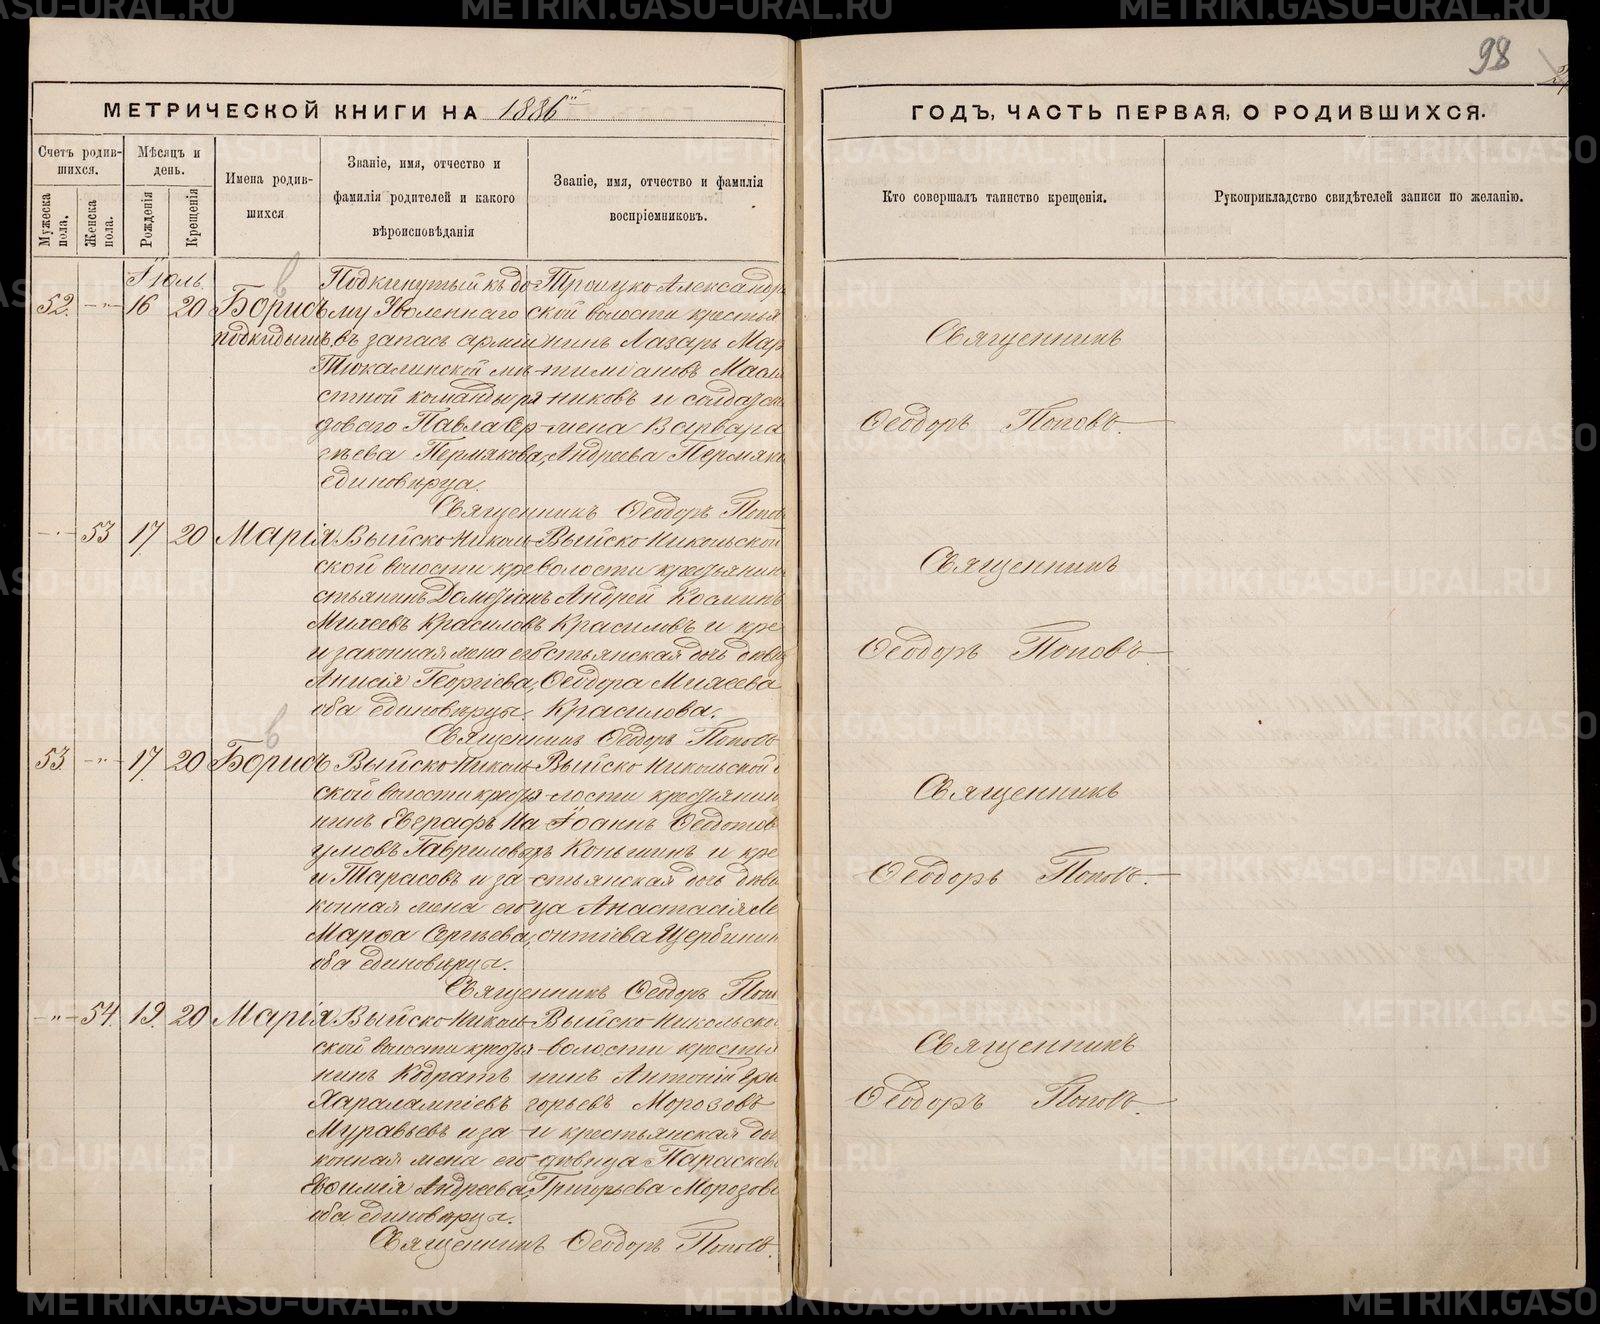 98
МЕТРИЧЕСКОЙ КНИГИ НА 1886й
ГОДЪ, ЧАСТЬ ПЕРВАЯ, О РОДИВШИХСЯ.
Счетъ родив-
шихся.
Мужеска
пола.
Женска
пола.
Мѣсяцъ и
день.
Рожденія
Крещенія
Имена родив-
шихся
Званіе, имя, отчество и
фамилія родителей и какого
вѣроисповѣданія
Званіе, имя, отчество и фамилія
воспріемниковъ.
Кто совершалъ таинство крещенія.
Рукоприкладство свидѣтелей записи по желанію.
Іюль.
52. -"- 16 20 Борисъ
подкидышъ,
Подкинутый къ до-
му Уволеннаго
въ запасъ арміи
Тюкалинской мѣ-
стной команды ря
доваго Павла Сер-
гѣева Пермякова,
единовѣрца.
Троицко Александров
ской волости крестья
нинъ Лазарь Мар
тиміановъ Масля
никовъ и солдатск
жена Варвара
Андреева Пермяко
Священникъ Ѳеодоръ Поповъ
Священникъ
Ѳеодоръ Поповъ.
-"- 53 17 20 Марія
Выйско Николь-
ской волости кре
стьянинъ Дометіанъ
Михеевъ Красиловъ
и законная жена его
Анисія Георгіева,
оба единовѣрцы.
Выйско Никольской
волости крестьянин
Андрей Косминъ
Красиловъ и кре
стьянская дочь дѣвиц
Ѳеодора Михеева
Красилова.
Священникъ Ѳеодоръ Поповъ
Священникъ
Ѳеодоръ Поповъ
53. -"- 17 20 Борисъ
Выйско Николь-
ской волости крестья
нинъ Евграфъ На
умовъ Гавриловыхъ
и Тарасовъ и за
конная жена его
Марѳа Сергѣева,
оба единовѣрцы.
Выйско Никольской в
лости крестьянин
Іоаннъ Ѳедотов
Коньшинъ и кре
стьянская дочь дѣви
ца Анастасія Ле
онтіева Щербинин
Священникъ Ѳеодоръ Попов
Священникъ
Ѳеодоръ Поповъ.
-"- 54. 19. 20 Марія
Выйско Николь-
ской волости крестья
нинъ Кодратъ
Харалампіевъ
Муравьевъ и за
конная жена его
Евѳимія Андреева,
оба единовѣрцы.
Выйско Никольской
волости крестья
нинъ Антоній Гри
горьевъ Морозовъ
и крестьянская доч
дѣвица Параскев
Григорьева Морозов
Священникъ Ѳеодоръ Поповъ.
Священникъ
Ѳеодоръ Поповъ.
METRIKI.GASO-URAL.RU